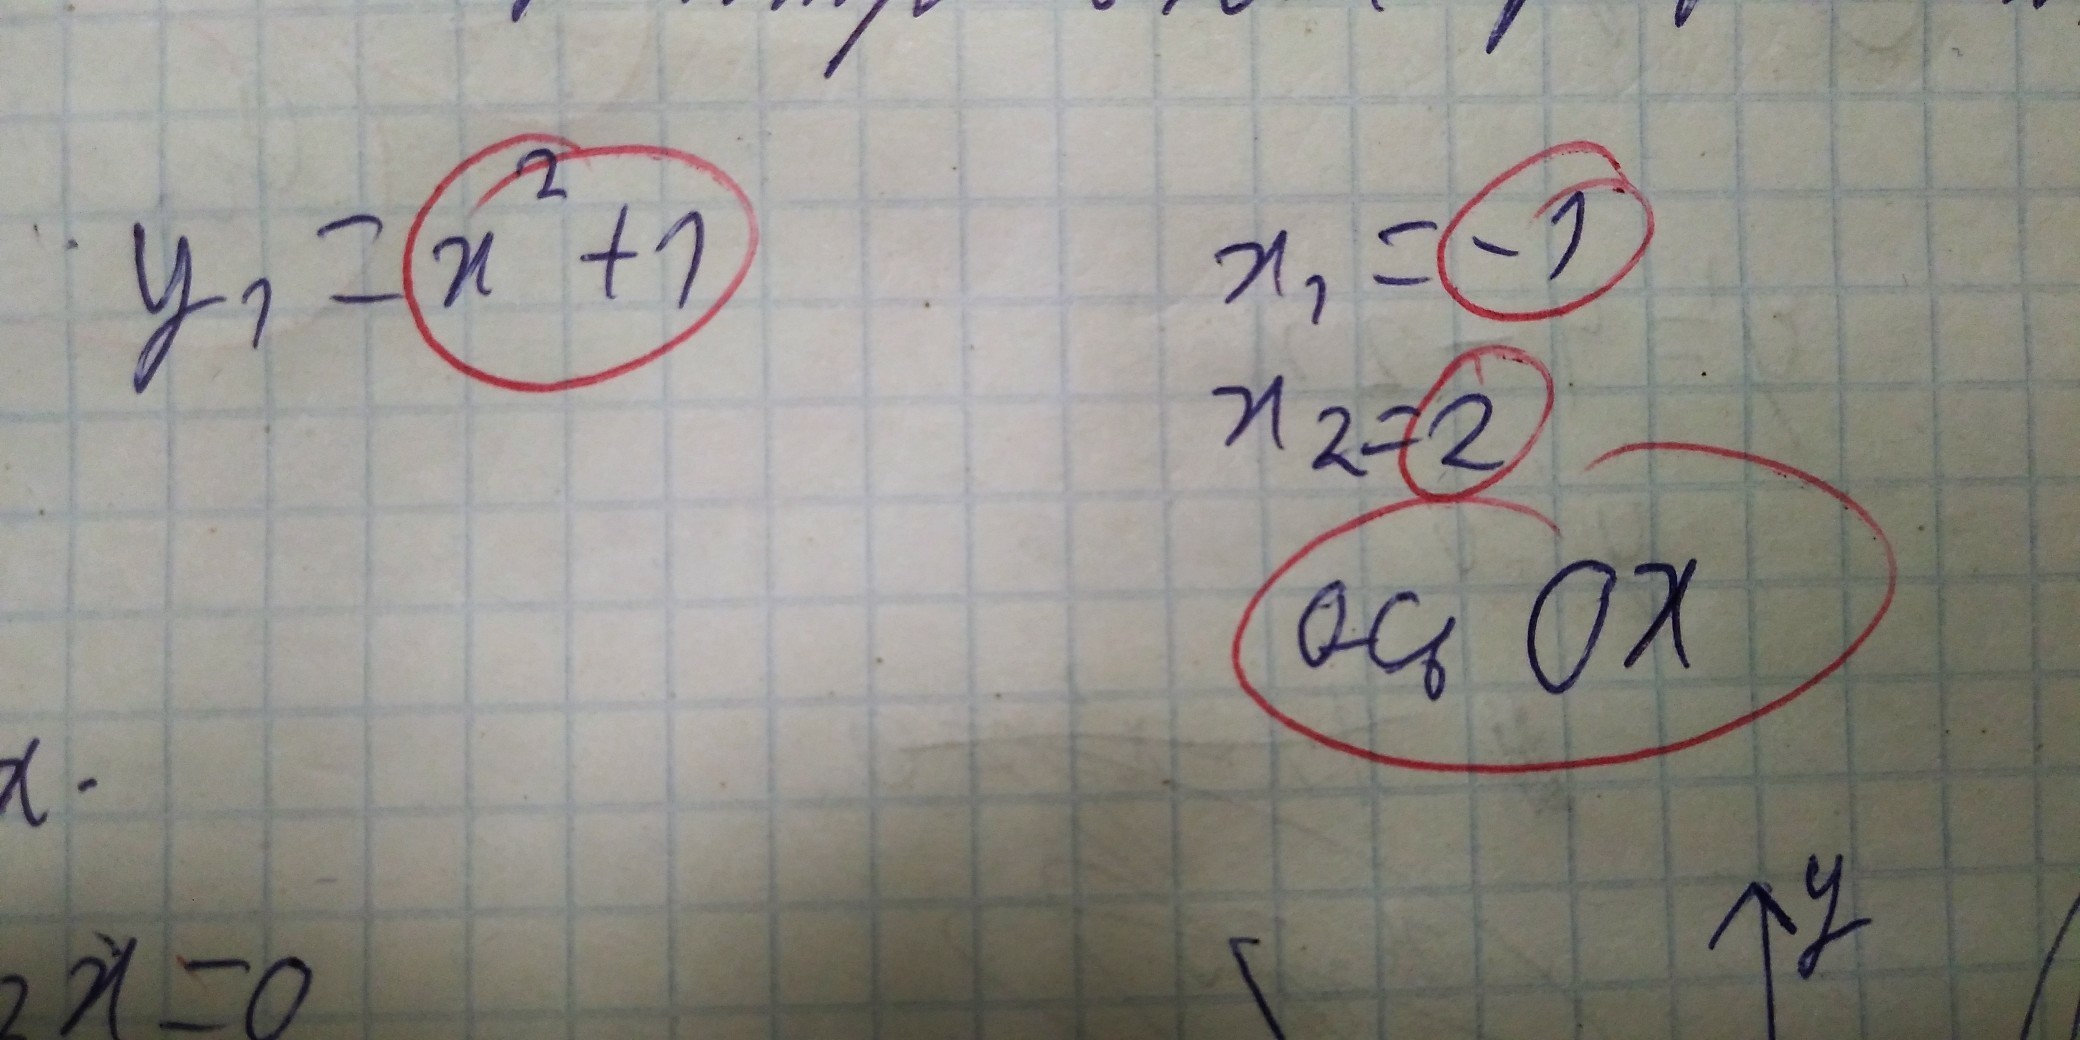 y₁ = x² + 1
x₁ = -1
x₂ = 2
ось OX
x.
2x = 0
y